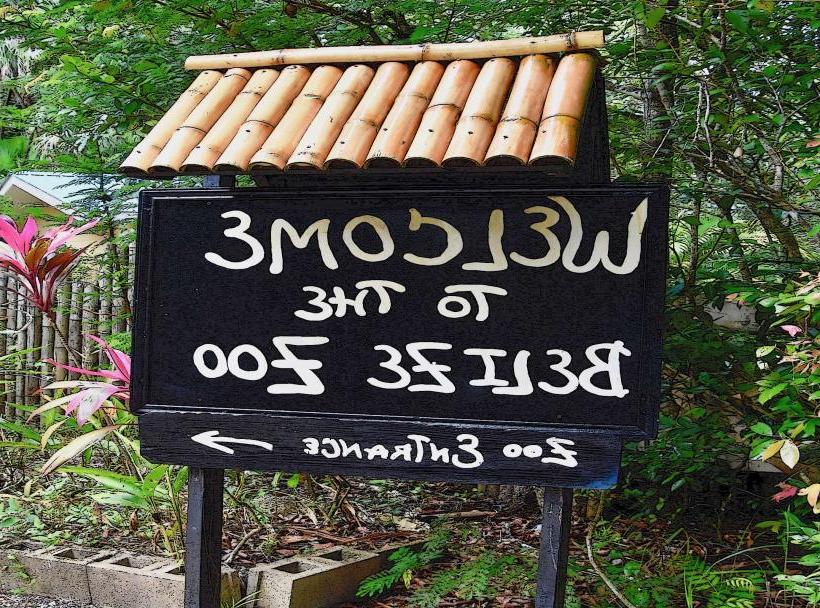 WELCOME
TO THE
BELIZE ZOO
ZOO ENTRANCE ←